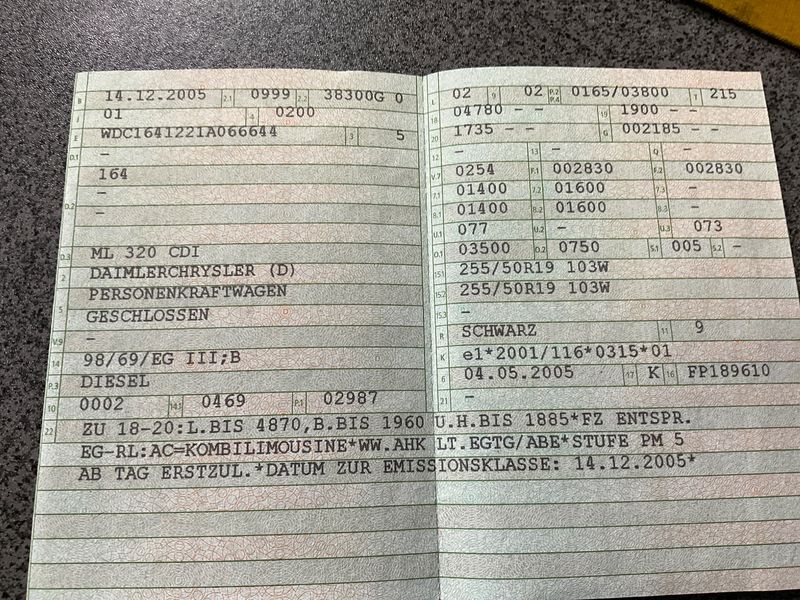 B 14.12.2005 2.1 0999 2.2 38300G 0
J 01 4 0200
E WDC1641221A066644 3 5
D.1 –
164
D.2 –
–
D.3 ML 320 CDI
2 DAIMLERCHRYSLER (D)
PERSONENKRAFTWAGEN
5 GESCHLOSSEN
V.9 –
14 98/69/EG III;B
P.3 DIESEL
10 0002 14.1 0469 P.1 02987
L 02 9 02 P.2 P.4 0165/03800 T 215
18 04780 – – 19 1900 – –
20 1735 – – G 002185 – –
12 – 13 – Q –
V.7 0254 F.1 002830 F.2 002830
7.1 01400 7.2 01600 7.3 –
8.1 01400 8.2 01600 8.3 –
U.1 077 U.2 – U.3 073
O.1 03500 O.2 0750 S.1 005 S.2 –
15.1 255/50R19 103W
15.2 255/50R19 103W
15.3 –
R SCHWARZ 11 9
K e1*2001/116*0315*01
6 04.05.2005 17 K 16 FP189610
21 –
22 ZU 18-20:L.BIS 4870,B.BIS 1960 U.H.BIS 1885*FZ ENTSPR.
EG-RL:AC=KOMBILIMOUSINE*WW.AHK LT.EGTG/ABE*STUFE PM 5
AB TAG ERSTZUL.*DATUM ZUR EMISSIONSKLASSE: 14.12.2005*